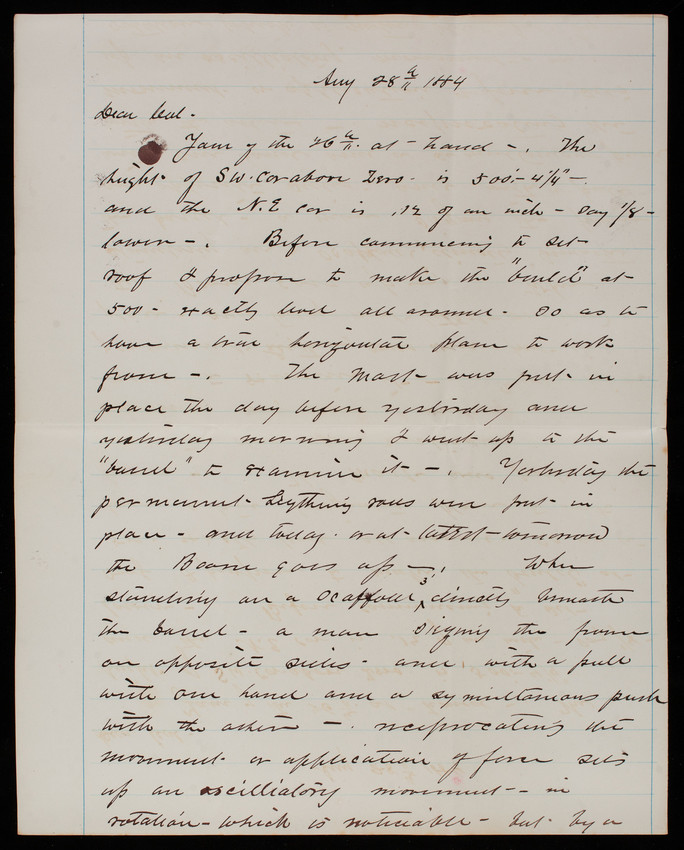 Aug 28th 1884
Dear Col -
Yours of the 26th at hand -. The
height of SW. cor above Zero is 500'.- 4¼" -.
and the N.E cor is .12 of an inch - say 1/8 -
lower -. Before commencing to set
roof I propose to make the "build" at
500 - exactly level all around - so as to
have a true horizontal plane to work
from -. The Mast was put in
place the day before yesterday and
yesterday morning I went up to the
"barrel" to examine it -. Yesterday the
permanent rods were put in
place - and today or at latest tomorrow
the Boom goes up -. When
standing on a scaffold 3' directly beneath
the barrel - a man the frame
on opposite sides - and with a pull
with one hand and a symultaneous push
with the other - reciprocating the
movement or application of force sets
up an oscillatory movement - in
rotation - which is noticiable - but by a